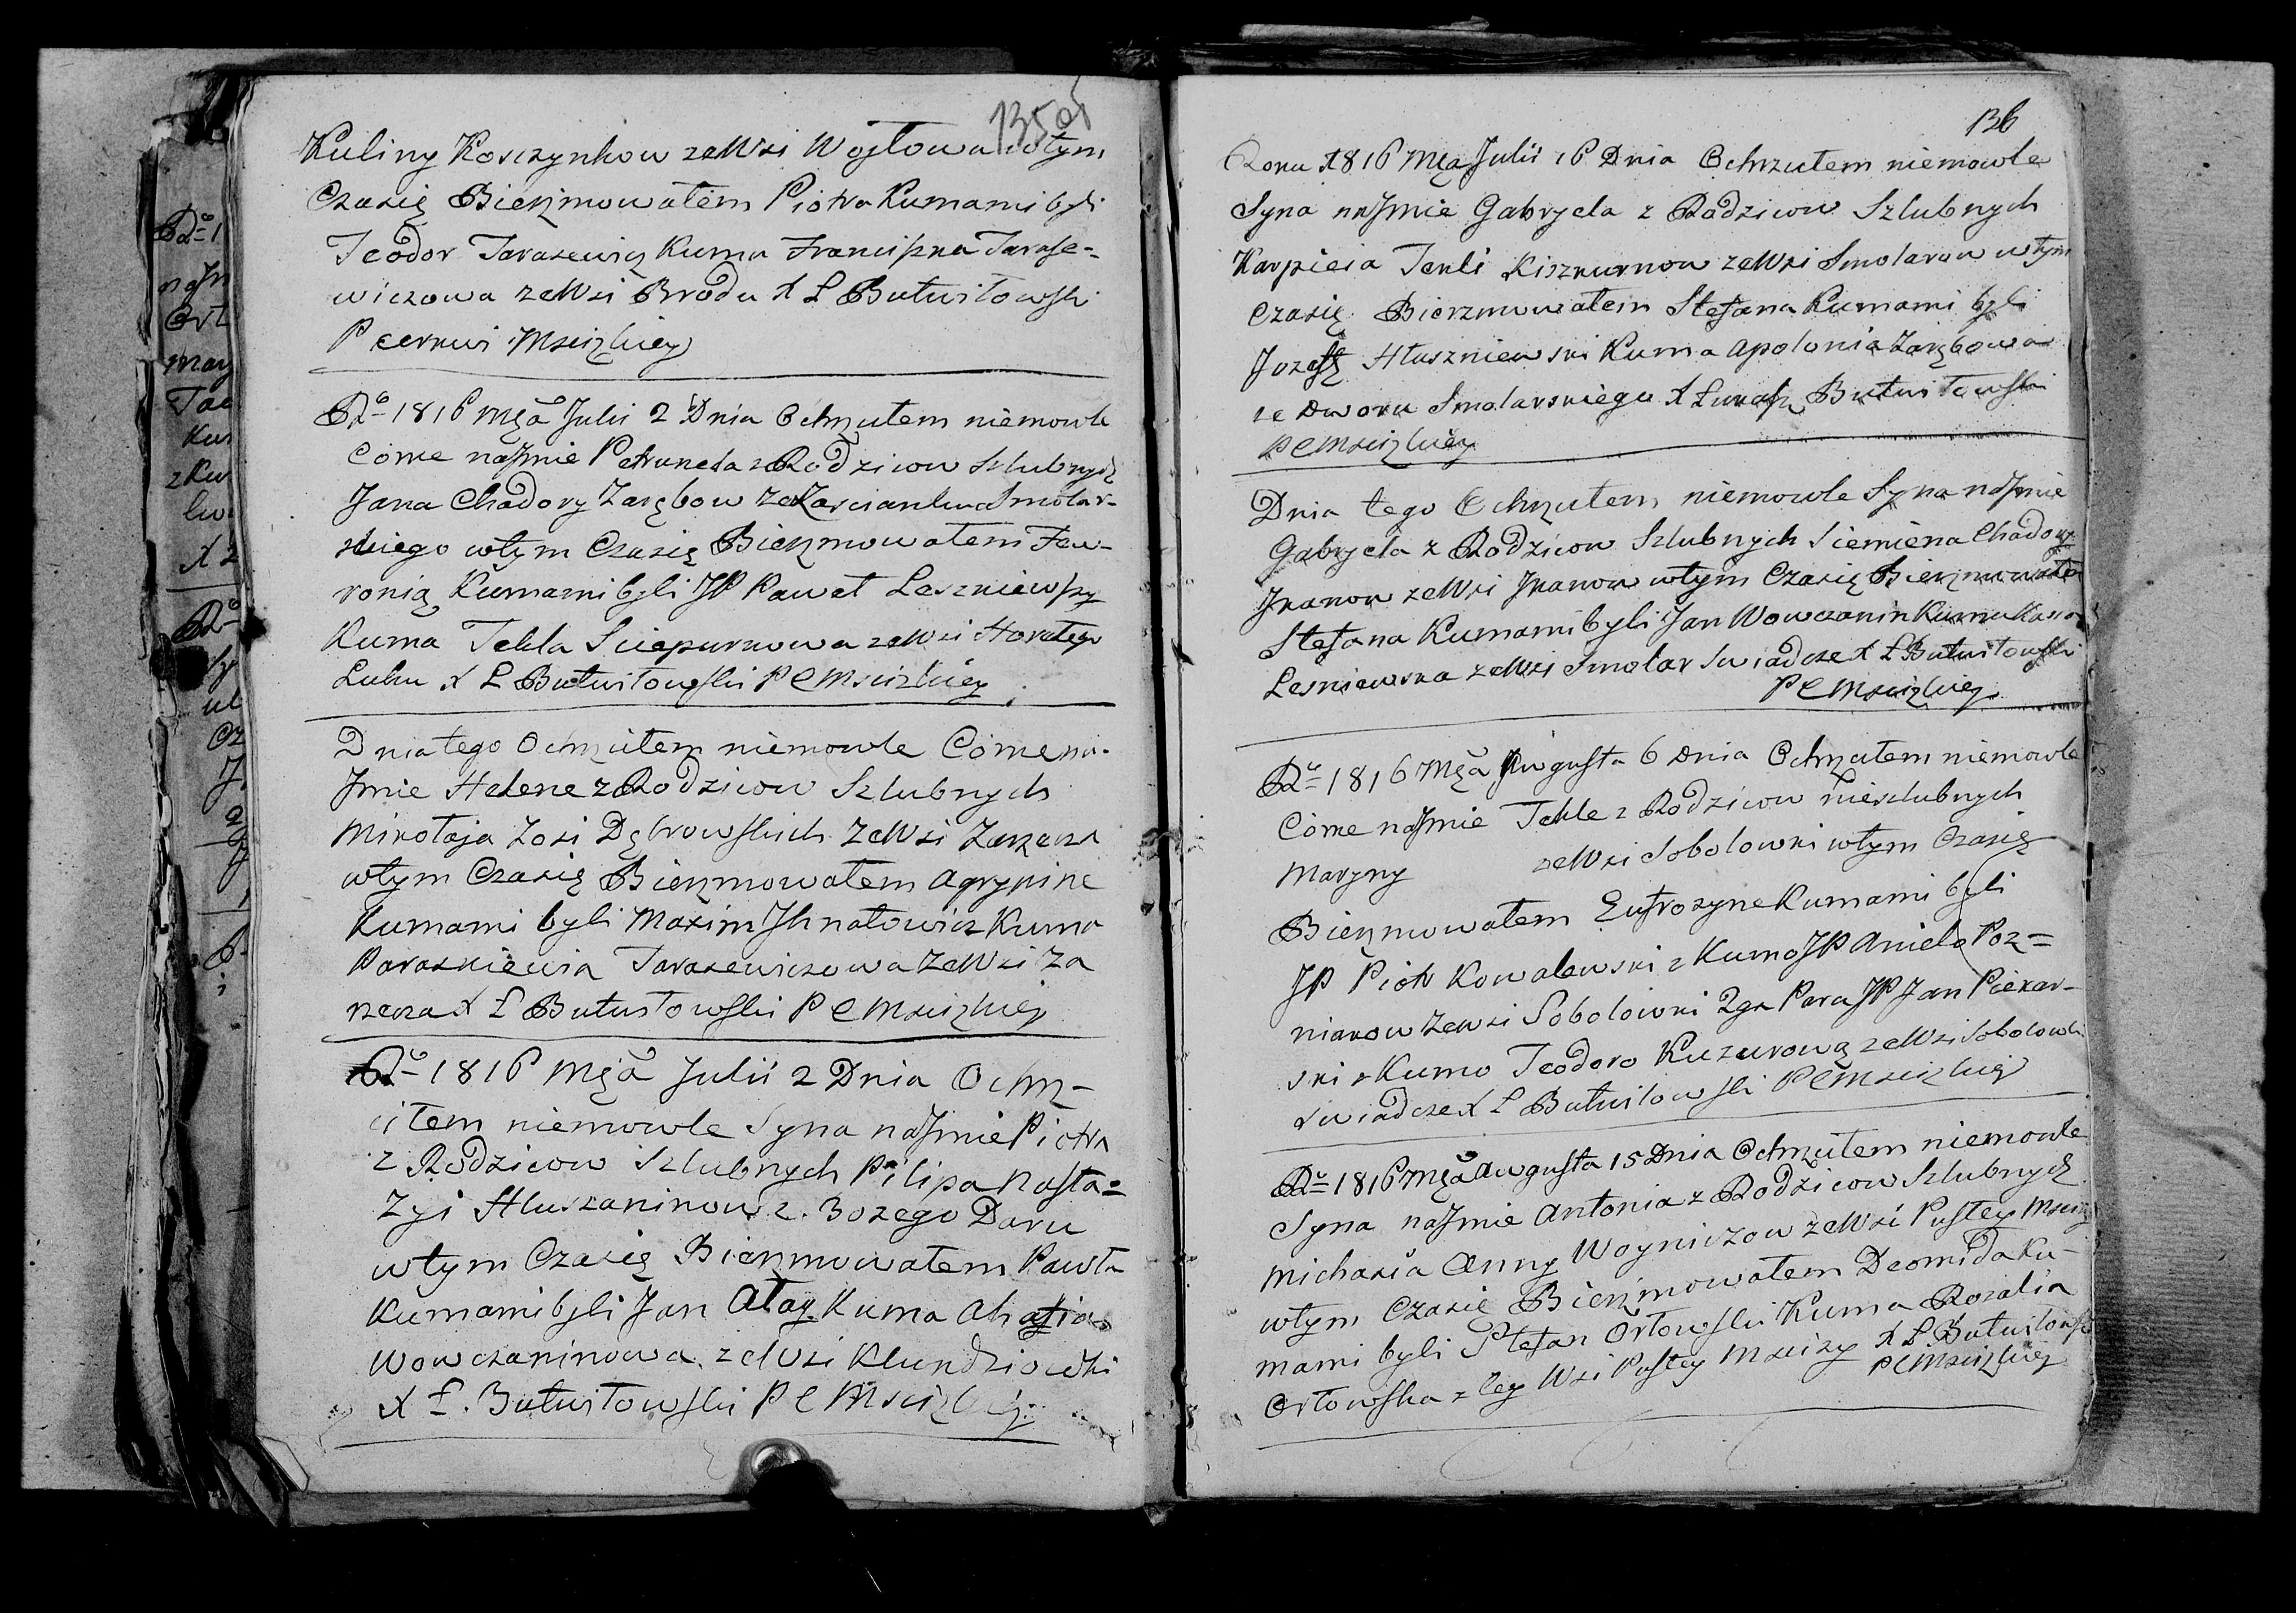 135 об
Kuliny Koszynkow ze Wsi Woytowa wtym
Czasię Bierzmowałem Piotra Kumami byli
Teodor Tarasewicz Kuma Franciszka Tarase-
wiczowa ze Wsi Brodu X Ł Butwiłowski
P cerkwi Msciżkiey
Ro 1816 Mca Julii 2 Dnia Ochrzciłem niemowle
Córke na Jmie Petronela z Rodzicow Szlubnych
Jana Chadory Zarębow ze Zascianku Smolar-
skiego wtym Czasię Bierzmowałem Few-
ronią Kumami byli JP Paweł Leszniewski
Kuma Tekla Sciepurkowa ze Wsi Horałego
Luhu X Ł Butwiłowski P C Msciżkiey
Dnia tego Ochrzciłem niemowle Córke na
Jmie Helene z Rodzicow Szlubnych
Mikołaja Zosi Dąbrowskich ze Wsi Zarzecza
wtym Czasię Bierzmowałem Agrypine
Kumami byli Maxim Jhnatowicz Kuma
Paraskiewia Tarasewiczowa ze Wsi Za
rzecza X Ł Butwiłowski P C Msciżkiey
Ro 1816 Mca Julii 2 Dnia Ochrz-
ciłem niemowle Syna na Jmie Piotra
z Rodzicow Szlubnych Pilipa Nasta=
zyi Hluszaninow z Bożego Daru
wtym Czasię Bierzmowałem Pawła
Kumami byli Jan Ałay Kuma Ahafia
Wowczaninowa ze Wsi Klundziowki
X Ł. Butwiłowski P C Msciżkiey
136
Roku 1816 Mca Julii 16 Dnia Ochrzciłem niemowle
Syna na Jmie Gabryela z Rodzicow Szlubnych
Karpieia Tekli Kiszkurnow ze Wsi Smolarow wtym
Czasię Bierzmowałem Stefana Kumami byli
Jozef Hłuszniewski Kuma Apolonia Zarębowa
ze Dworu Smolarskiego X Łukasz Butwiłowski
P C Msciżkiey
Dnia tego Ochrzciłem niemowle Syna na Jmie
Gabryela z Rodzicow Szlubnych Siemiena Chadory
Jwanow ze Wsi Jwanow wtym Czasię Bierzmowałem
Stefana Kumami byli Jan Wowczanin Kuma
Lesniewska ze Wsi Smolar Swiadcze X Ł Butwiłowski
P C Msciżkiey
Ro 1816 Mca Augusta 6 Dnia Ochrzciłem niemowle
Córke na Jmie Tekle z Rodzicow nieszlubnych
Maryny ze Wsi Sobolowki wtym Czasię
Bierzmowałem Eufrozyne Kumami byli
JP Piotr Kowalewski z Kumo JP Aniela Poz=
niakow ze Wsi Sobolowki 2ga Para JP Jan Piekar-
ski z Kumo Teodoro Kuzurową ze Wsi Sobolowki
swiadcze X Ł Butwiłowski P C Msciżkiey
Ro 1816 Mca Augusta 15 Dnia Ochrzciłem niemowle
Syna na Jmie Antonia z Rodzicow Szlubnych
Michasia Anny Woyniczow ze Wsi Pustey Msciży
wtym Czasie Bierzmowałem Deomida Ku-
mami byli Stefan Orłowski Kuma Rozalia
Orłowska z tey Wsi Pustey Msciży X Ł Butwiłowski
P C Msciżkiey